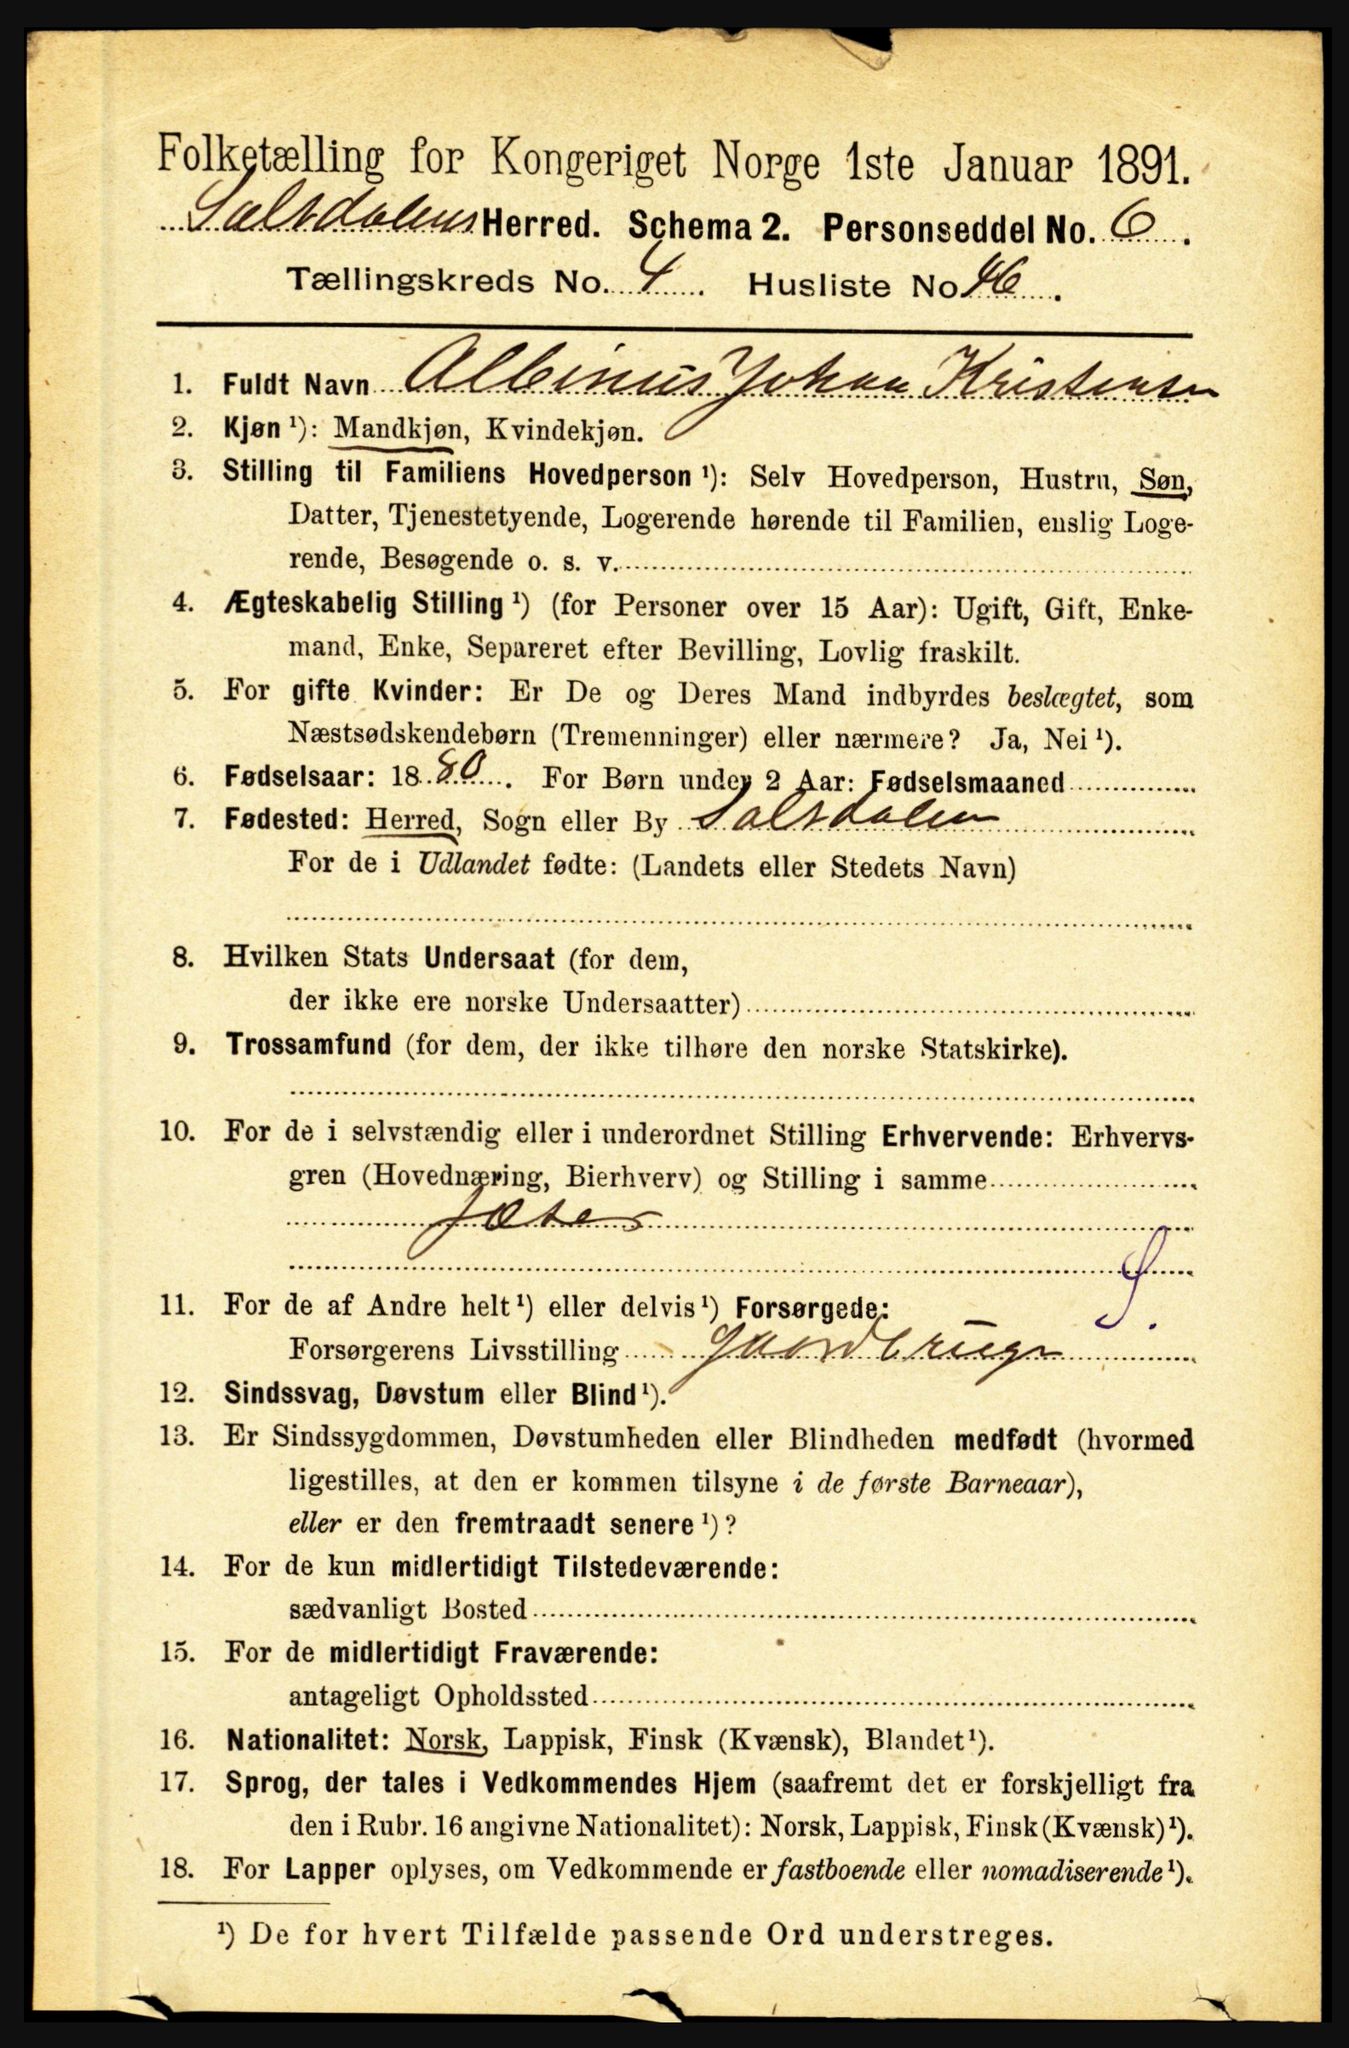 Folketælling for Kongeriget Norge 1ste Januar 1891.
Saltdalens Herred. Schema 2. Personseddel No. 6.
Tællingskreds No. 4. Husliste No 46.
1. Fuldt Navn Albinus Johan Kristensen
2. Kjøn ¹): Mandkjøn, Kvindekjøn.
3. Stilling til Familiens Hovedperson ¹): Selv Hovedperson, Hustru, Søn,
Datter, Tjenestetyende, Logerende hørende til Familien, enslig Loge-
rende, Besøgende o. s. v.
4. Ægteskabelig Stilling ¹) (for Personer over 15 Aar): Ugift, Gift, Enke-
mand, Enke, Separeret efter Bevilling, Lovlig fraskilt.
5. For gifte Kvinder: Er De og Deres Mand indbyrdes beslægtet, som
Næstsødskendebørn (Tremenninger) eller nærmere? Ja, Nei ¹).
6. Fødselsaar: 1880. For Børn under 2 Aar: Fødselsmaaned
7. Fødested: Herred, Sogn eller By Saltdalen
For de i Udlandet fødte: (Landets eller Stedets Navn)
8. Hvilken Stats Undersaat (for dem,
der ikke ere norske Undersaatter)
9. Trossamfund (for dem, der ikke tilhøre den norske Statskirke).
10. For de i selvstændig eller i underordnet Stilling Erhvervende: Erhvervs-
gren (Hovednæring, Bierhverv) og Stilling i samme
S.
11. For de af Andre helt ¹) eller delvis ¹) Forsørgede:
Forsørgerens Livsstilling Gaardbruger
12. Sindssvag, Døvstum eller Blind ¹).
13. Er Sindssygdommen, Døvstumheden eller Blindheden medfødt (hvormed
ligestilles, at den er kommen tilsyne i de første Barneaar),
eller er den fremtraadt senere ¹)?
14. For de kun midlertidigt Tilstedeværende:
sædvanligt Bosted
15. For de midlertidigt Fraværende:
antageligt Opholdssted
16. Nationalitet: Norsk, Lappisk, Finsk (Kvænsk), Blandet ¹).
17. Sprog, der tales i Vedkommendes Hjem (saafremt det er forskjelligt fra
den i Rubr. 16 angivne Nationalitet): Norsk, Lappisk, Finsk (Kvænsk) ¹).
18. For Lapper oplyses, om Vedkommende er fastboende eller nomadiserende ¹).
¹) De for hvert Tilfælde passende Ord understreges.